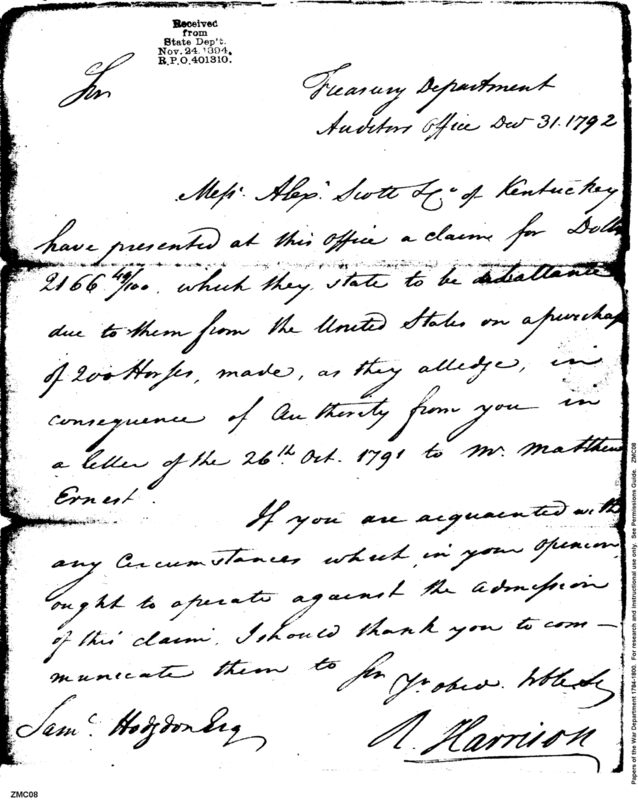 Received
from
State Dep't.
Nov. 24. 1894.
R.P.O. 401310.
Sir
Treasury Department
Auditors Office Dec 31. 1792
Messrs. Alexr. Scott & Co. of Kentucky
have presented at this office a claim for Dolls
2166 49/100. which they state to be a ballance
due to them from the United States on a purchase
of 200 Horses, made, as they alledge, in
consequence of Authority from you in
a letter of the 26th. Oct. 1791 to Mr. Matthew
Ernest.
If you are acquainted with
any Circumstances which in your opinion
ought to operate against the admission
of this claim. I should thank you to com-
municate them to Sir
Yr. obed. Hble St
R. Harrison
Saml. Hodgdon Esq
Papers of the War Department 1784-1800. For research and instructional use only. See Permissions Guide. ZMC08
ZMC08